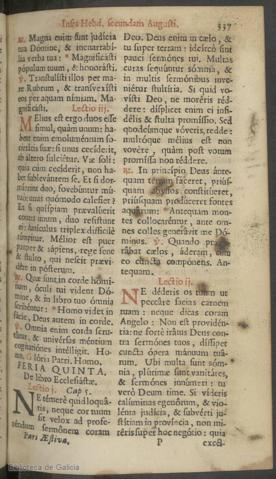 Infra Hebd. secundam Augusti. 337
℟. Magna enim sunt judicia
tua Dómine, & inenarrabi-
lia verba tua: * Magnificasti
pópulum tuum, & honorásti.
℣. Transtulísti illos per ma-
re Rubrum, & transvexísti
eos per aquam nimiam. Ma-
gnificasti.
Lectio iij.
MElius est ergo duos esse
simul, quàm unum: ha-
bent enim emoluméntum so-
cietátis suæ: si unus cecíderit,
ab áltero fulciétur. Væ soli:
quia cùm cecíderit, non ha-
bet sublevántem se. Et si dor-
míerint duo, fovebúntur mú-
tuò: unus quómodo calefíet?
Et si quíspiam prævalúerit
contra unum, duo resístunt
ei: funículus triplex difficilè
rúmpitur. Mélior est puer
pauper & sápiens, rege sene
& stulto, qui nescit præví-
dére in pósterum.
℟. Quæ sunt in corde hómi-
num, óculi tui vident Dó-
mine, & in libro tuo ómnia
scribéntur: * Homo videt in
fácie, Deus autem in corde.
℣. Omnia enim corda scru-
tátur, & univérsas méntium
cogitatiónes intélligit. Ho-
mo. Glória Patri. Homo.
FERIA QUINTA.
De libro Ecclesiástæ.
Lectio j. Cap 5.
NE témerè quid loquá-
ris, neque cor tuum
sit velox ad profe-
réndum sermónem coram
Pars Æstiva.
Deo. Deus enim in cælo, &
tu super terram: idcircò sint
pauci sermónes tui. Multas
curas sequúntur sómnia, &
in multis sermónibus inve-
niétur stultítia. Si quid vo-
vísti Deo, ne moréris réd-
dere: displicet enim ei infi-
délis & stulta promíssio. Sed
quodcúmque vóveris, redde:
multóque mélius est non
vovére, quàm post votum
promíssa non réddere.
℟. In princípio Deus ánte-
quam terram fáceret, priús-
quam abýssos constitúeret,
priúsquam prodúceret fontes
aquárum: * Antequam mon-
tes collocaréntur, ante om-
nes colles generávit me Dó-
minus. ℣. Quando præ-
rábat cælos, áderam, cum
eo cuncta compónens. An-
tequam.
Lectio ij.
NE déderis os tuum ut
peccáre fácias carnem
tuam: neque dicas coram
Angelo: Non est providén-
tia: ne fortè irátus Deus con-
tra sermónes tuos, díssipet
cuncta ópera mánuum tuá-
rum. Ubi multa sunt sóm-
nia, plúrimæ sunt vanitátes,
& sermónes innúmeri: tu
verò Deum time. Si víderis
calúmnias egenórum, & vio-
lénta judícia, & subvérti ju-
stítiam in província, non mi-
réris super hoc negótio: quia
P excél-
Biblioteca de Galicia